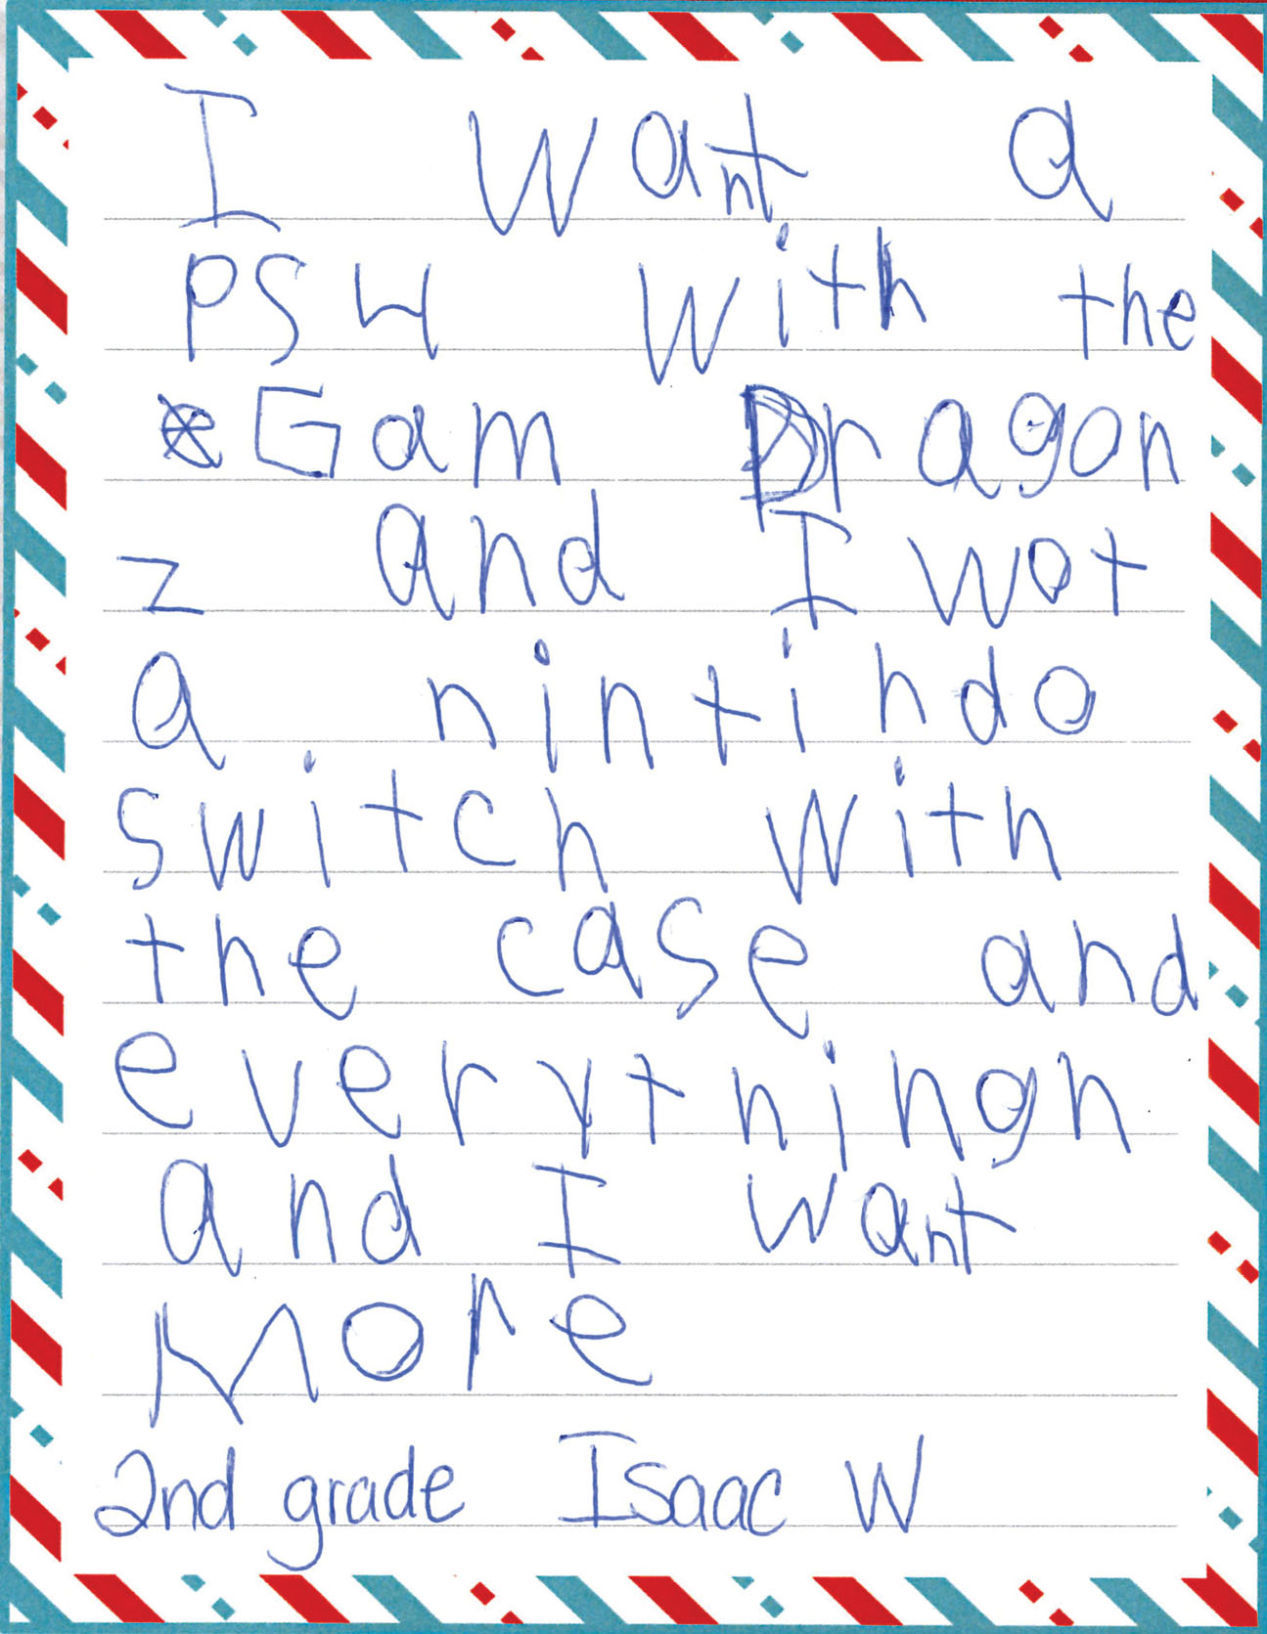 I want a
PS4 with the
Gam Dragon
z and I wot
a nintindo
switch with
the case and
everythingh
and I want
More
2nd grade Isaac W